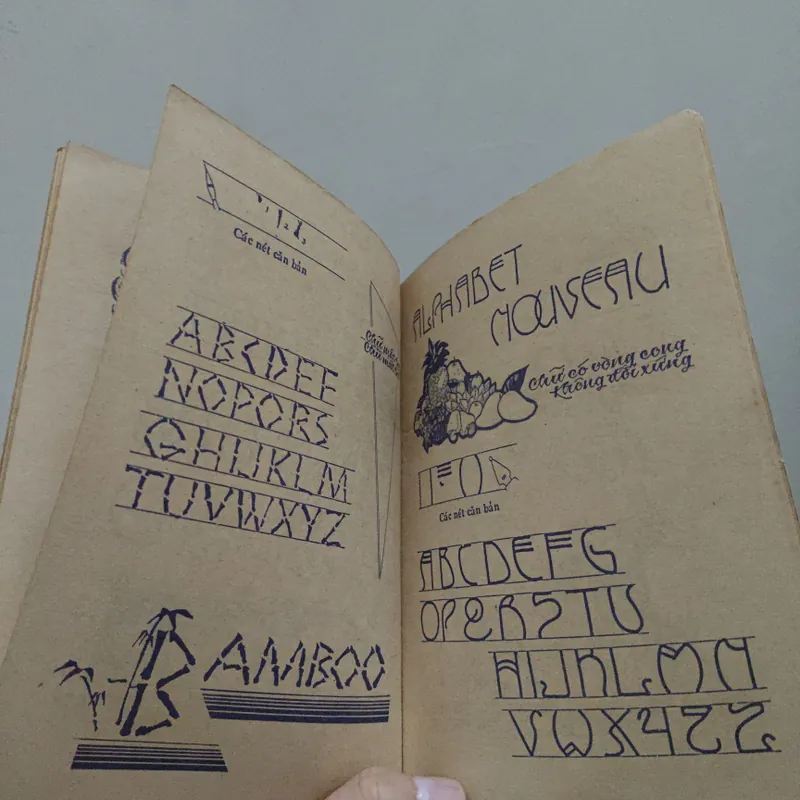 1 2 3
Các nét căn bản
ABCDEF
NOPQRS
GHIJKLM
TUVWXYZ
BAMBOO
ALPHABET
NOUVEAU
Chữ có vòng cong
không đối xứng
Các nét căn bản
ABCDEFG
OPQRSTU
HIJKLMN
VWXYZZ